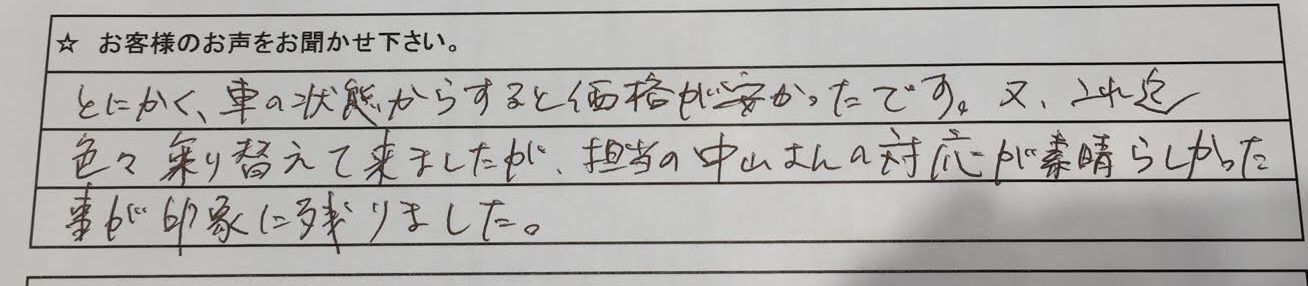 ☆ お客様のお声をお聞かせ下さい。
とにかく、車の状態からすると価格が安かったです。又、これ迄
色々乗り替えて来ましたが、担当の中山さんの対応が素晴らしかった
事が印象に残りました。